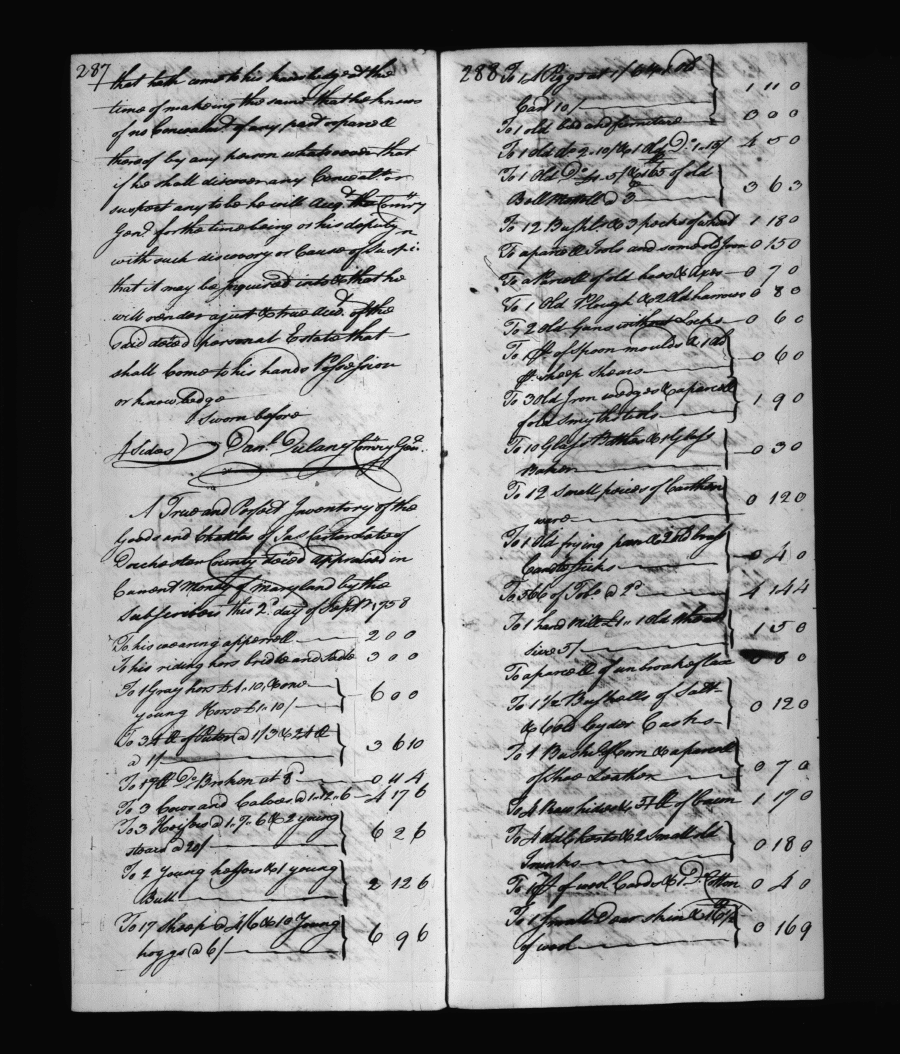 287
that hath come to his hands knowledge at the
time of makeing the same that he knows
of no Concealm.t of any part or parcell
thereof by any person whatsoever that
if he shall discover any Concealt or
suspect any to be he will Acq.t the Com'ry
Gen.l for the time being or his deputy
with such discovery or Cause of Suspi:
that it may be Inquired into & that he
will render a just & true Acc.t of the
said dec'd personal Estate that
shall Come to his hands Possession
or knowledge
Sworn before
4 Sides) Dan.l Dulany Com'ry Gen.l
A True and Perfect Inventory of the
Goods and Chattles of Jas Carter Late of
Dorchester County Dec'd appraised in
Current Money of Maryland by the
Subscribers this 2.d day of Sept.r 1758
To his wearing apperrell 2 0 0
To his riding hors bridle and Sadle 3 0 0
To 1 Gray hors £4..10, & one
young Horse £1..10/ 6 0 0
To 34 lb of Puter @ 1/3 & 24 lb
a 1/ 3 6 10
To 17 lb D.o Broken at 8.d 0 11 4
To 3 Cows and Calves @ 1..12..6 4 17 6
To 3 Heifers @ 1..7..6 & 2 young
stears @ 20/ 6 2 6
To 2 Young heffers & 1 young
Bull 2 12 6
To 17 Sheep @ 4/6 & 10 Young
hoggs @ 6/ 6 9 6
288 To 14 Piggs at 1/6
Card 10/ 1 11 0
To 1 old bed and furniture 3 0 0
To 1 Old do 2..10/ & 1 Old D.o 1..15/ 4 5 0
To 1 Old D.o /5/ & 165 of old
Bell Mettell @ 3 3 6 3
To 12 Bushls & 3 pecks of wheat 1 18 0
To a parcel Tools and some old Iron 0 15 0
To a Parcell of old hoes & Axes 0 7 0
To 1 Old Plough & 2 Old harrows 0 8 0
To 2 old Guns without Locks 0 6 0
To 1 pr of Spoon moulds & 1 old
pr sheep Shears 0 6 0
To 3 Old Iron wedges & a parcell
of old Smyths tools 1 9 0
To 10 Glass Bottles & 1 Glass
Baker 0 3 0
To 12 Small peices of Earthen
ware 0 12 0
To 1 Old frying pan & 2 Old brass
Candlesticks 0 4 0
To 566 of Tob.o @ 2.d 4 14 4
To 1 hand Mill £1.. 1 Old Wheat
Sive 5/ 1 5 0
To a parcell of unbroke flax 0 8 0
To 1 1/2 Bushells of Salt
& 6 old Cyder Casks 0 12 0
To 1 Bushl of Corn & a parcell
of Shoe Leather 0 7 0
To 4 Raw hides & 54 lb of 1 17 0
To 4 old Chests & 2 Small old
Trunks 0 18 0
To 1 pr of wool Cards & 1 D.o Cotton 0 4 0
To 1 Small Dear Skin & 16 1/2
of wool 0 16 9